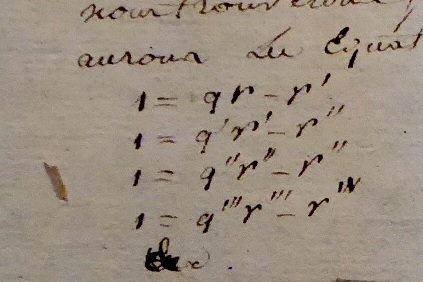 nous trouverons
aurons les Equat
1 = qr - r'
1 = q'r' - r''
1 = q''r'' - r''
1 = q'''r''' - r'''
&c.